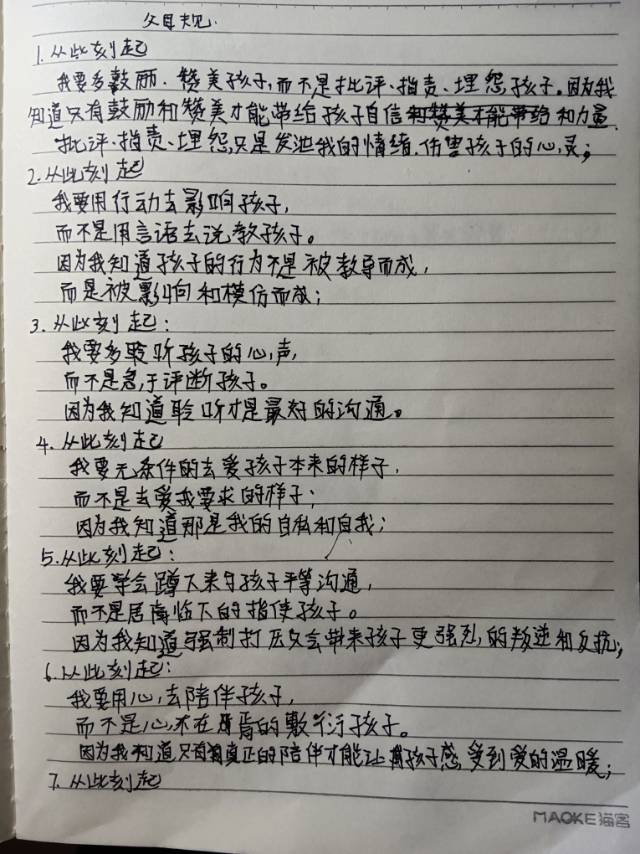 父母规.
1.从此刻起
我要多鼓励、赞美孩子,而不是批评、指责、埋怨孩子。因为我
知道只有鼓励和赞美才能带给孩子自信和赞美才能带给和力量.
批评、指责、埋怨,只是发泄我的情绪.伤害孩子的心灵;
2.从此刻起
我要用行动去影响孩子,
而不是用言语去说教孩子。
因为我知道孩子的行为不是被教导而成,
而是被影响和模仿而成;
3.从此刻起:
我要多聆听孩子的心声,
而不是急于评断孩子。
因为我知道聆听才是最好的沟通。
4.从此刻起
我要无条件的去爱孩子本来的样子,
而不是去爱我要求的样子;
因为我知道那是我的自私和自我;
5.从此刻起:
我要学会蹲下来与孩子平等沟通,
而不是居高临下的指使孩子。
因为我知道强制打压又会带来孩子更强烈的叛逆和反抗;
6.从此刻起:
我要用心去陪伴孩子,
而不是心不在焉的敷衍孩子。
因为我知道只有真正的陪伴才能让孩子感受到爱的温暖;
7.从此刻起
MAOKE猫客